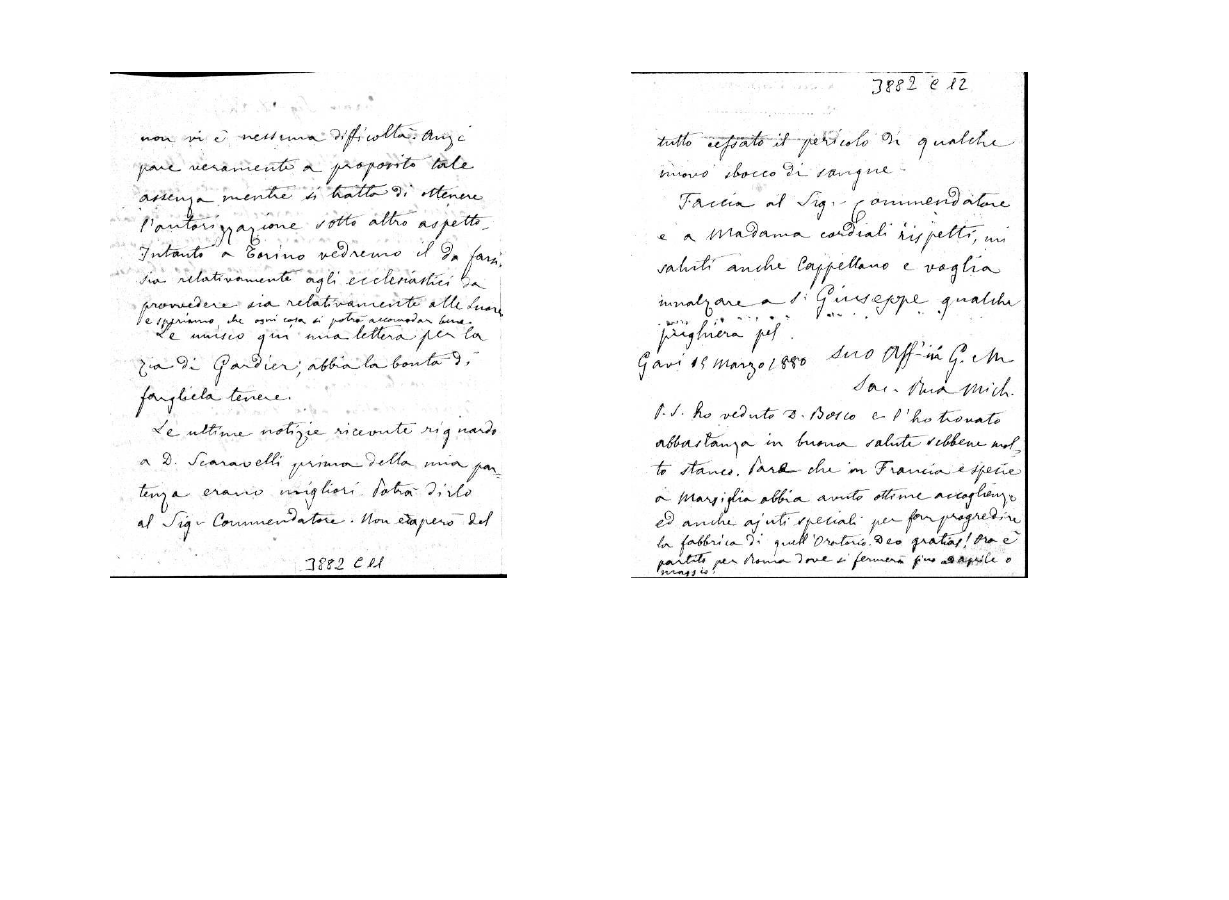 non vi è nessuna difficoltà. Anzi
pare veramente a proposito tale
assenza mentre si tratta di ottenere
l'autorizzazione sotto altro aspetto.
Intanto a Torino vedremo il da farsi,
sia relativamente agli ecclesiastici da
provvedere sia relativamente alle Suore
e speriamo, che ogni cosa si potrà accomodar bene.
Le unisco qui una lettera per la
zia di Gardier; abbia la bontà di
fargliela tenere.
Le ultime notizie ricevute riguardo
a D. Scaravelli prima della mia par-
tenza erano migliori. Potrà dirlo
al Sigr Commendatore. Non era però del
3882 C 11
3882 C 12
tutto cessato il pericolo di qualche
nuovo sbocco di sangue.
Faccia al Sigr Commendatore
e a Madama cordiali rispetti, mi
saluti anche Cappellano e voglia
innalzare a S. Giuseppe qualche
preghiera pel
Gavi 15 Marzo 1880 Suo Aff.mo in G. e M
Sac. Rua Mich.
P.S. ho veduto D. Bosco e l'ho trovato
abbastanza in buona salute sebbene mol-
to stanco. Pare che in Francia e specie
a Marsiglia abbia avuto ottime accoglienze
ed anche ajuti speciali per far progredire
la fabbrica di quell'Oratorio. Deo gratias! Ora è
partito per Roma dove si fermerà fino ad Aprile o
maggio.